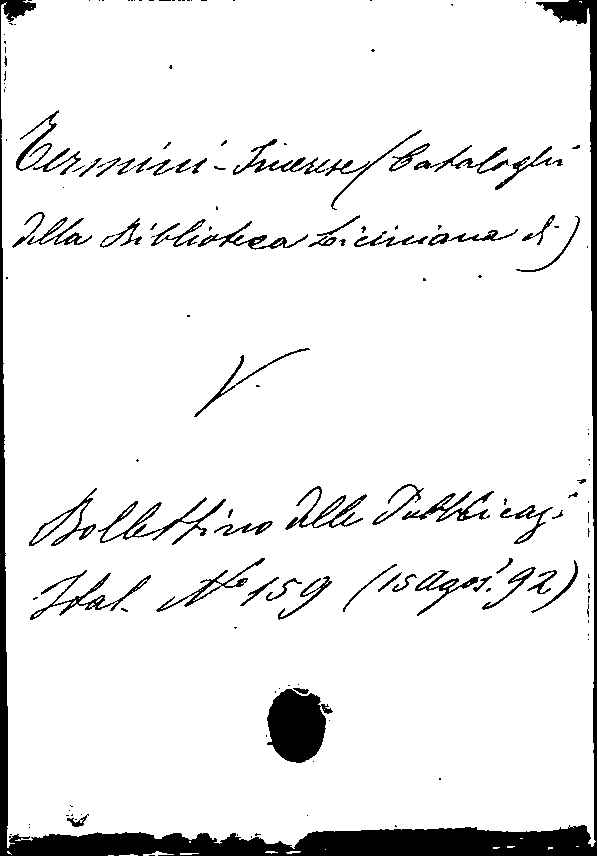 Termini-Imerese (Cataloghi
della Biblioteca Liciniana di)
V.
Bollettino delle Pubblicaz.i
Ital. No 159 (15 Agos. 92)